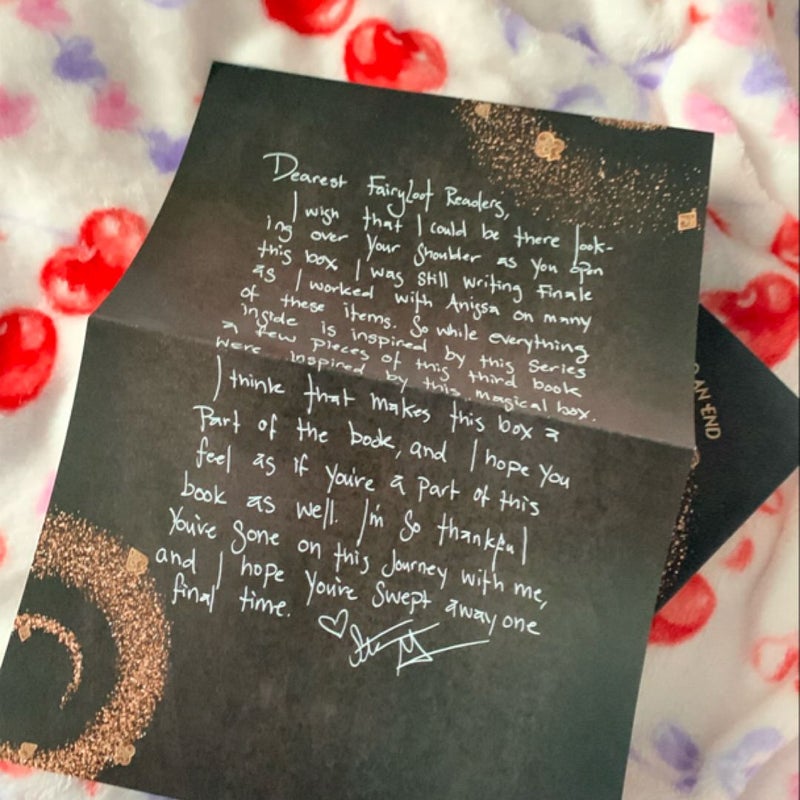 Dearest FairyLoot Readers,
I wish that I could be there look-
ing over your shoulder as you open
this box. I was still writing Finale
as I worked with Anissa on many
of these items. So while everything
inside is inspired by this series
a few pieces of this third book
were inspired by this magical box.
I think that makes this box a
part of the book, and I hope you
feel as if you're a part of this
book as well. I'm so thankful
you've gone on this journey with me,
and I hope you're swept away one
final time.
AN END